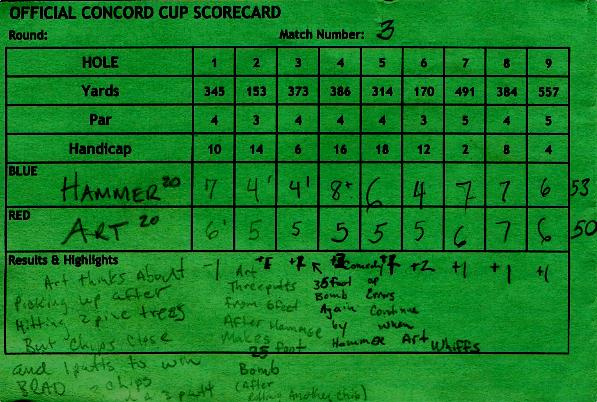 OFFICIAL CONCORD CUP SCORECARD
Round: Match Number: 3
HOLE 1 2 3 4 5 6 7 8 9
Yards 345 153 373 386 314 170 491 384 557
Par 4 3 4 4 4 3 5 4 5
Handicap 10 14 6 16 18 12 2 8 4
BLUE
HAMMER 20 7 4' 4' 8+ 6 4 7 7 6 53
RED
ART 20 6' 5 5 5 5 5 6 7 6 50
Results & Highlights
-1 +2 +1 +1 +1
Art thinks About
picking up after
Hitting 2 pine trees
But chips close
and 1 putts to win
BRAD 2 chips
a 3 putt
Art
Three putts
from 6 feet
After Hammer
Makes
25 foot
Bomb
(After
Rolling Another Chip)
35 foot
Bomb
Again
by
Hammer
Comedy
of
Errors
Continue
when
Art Whiffs